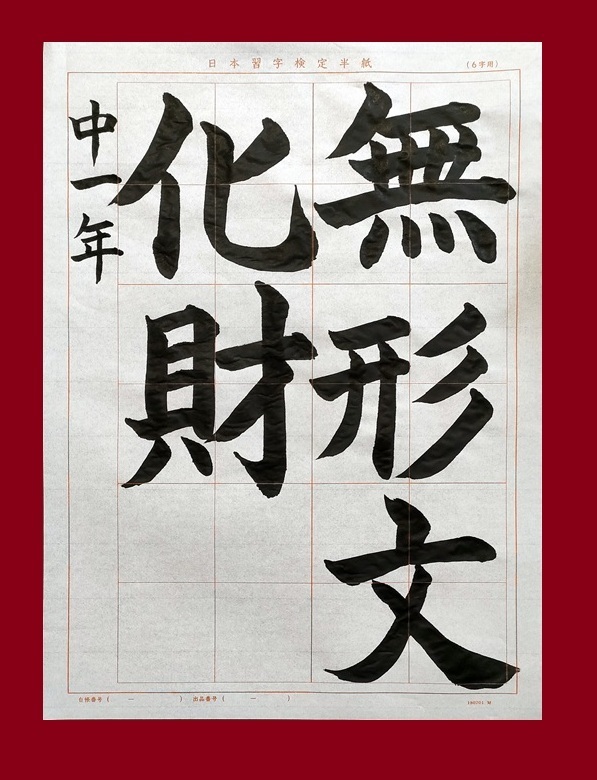 日本習字検定半紙
(6字用)
無形文
化財
中一年
会員番号 ( ー ) 出品番号 ( ー )
180701 M